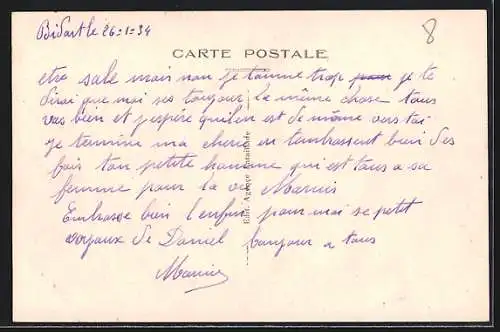 Bidart le 26-1-34
8
CARTE POSTALE
etre sale mais non je tourne trop je te
dirai que moi ses toujour la même chose tous
vas bien et jespére quilen est de même vers toi
je termine ma cheri en tembrassent bien des
fois ton petite homme qui est tous a sa
femme pour la vie Marius
Embrasse bien lenfent pour moi se petit
voyoux de Daniel bonjour a tous
Marius
Edit. Agence